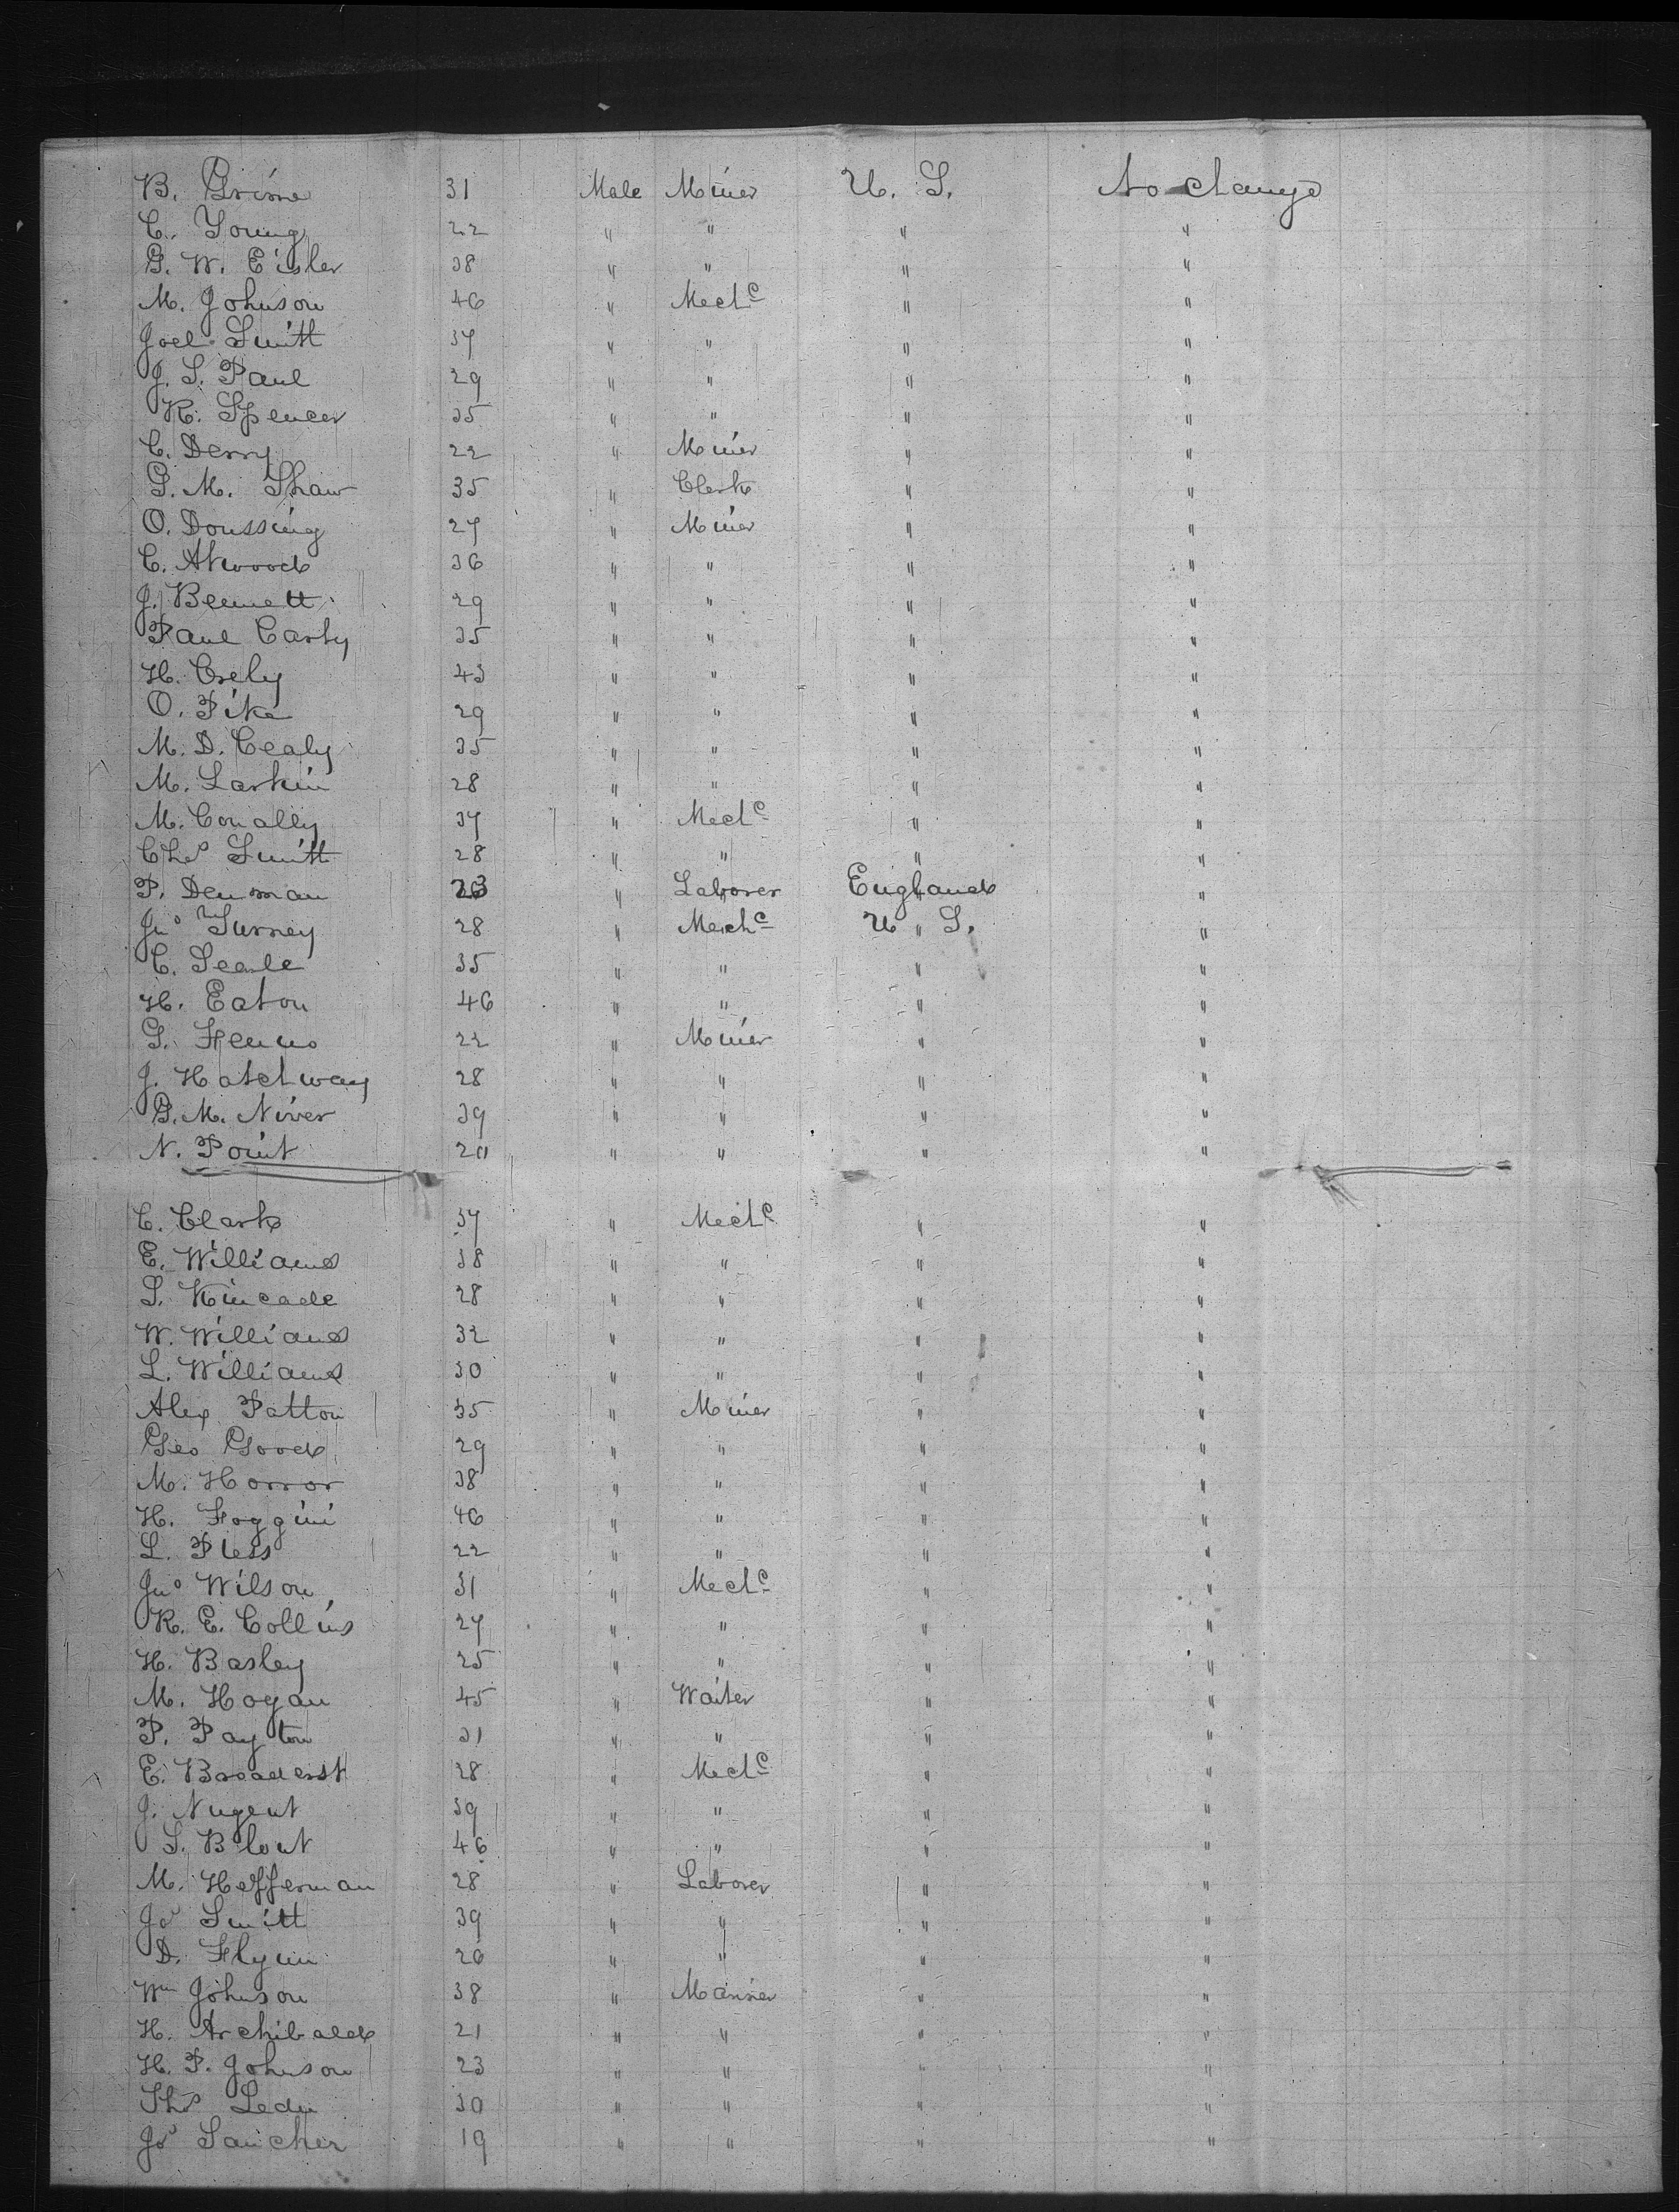 B. Grime 31 Male Miner U. S. No change
C. Young 22 " " " "
G. W. Eisler 38 " " " "
M. Johnson 46 " Mech^c " "
Joel Smith 37 " " " "
J. S. Paul 29 " " " "
R. Spencer 35 " " " "
C. Derry 22 " Miner " "
G. M. Shaw 35 " Clerk " "
O. Doussing 27 " Miner " "
C. Atwood 36 " " " "
J. Bennett 29 " " " "
Paul Carty 35 " " " "
H. Crely 43 " " " "
O. Pike 29 " " " "
M. D. Cealy 35 " " " "
M. Larkin 28 " " " "
M. Conally 37 " Mech^c " "
Chs Smith 28 " " " "
P. Denman " Laborer England "
Jno Turney 28 " Mech^c U. S. "
C. Searle 35 " " " "
H. Eaton 46 " " " "
G. Fenno 22 " Miner " "
J. Hatchway 28 " " " "
G. M. Niver 39 " " " "
N. Point " " " "
C. Clark 37 " Mech^c " "
E. Williams 38 " " " "
S. Kincade 28 " " " "
W. Williams 32 " " " "
L. Williams 30 " " " "
Alex Patton 35 " Miner " "
Geo Good 29 " " " "
M. Horror 38 " " " "
H. Foggini 46 " " " "
L. Pless 22 " " " "
Jno Wilson 31 " Mech^c " "
R. E. Collins 27 " " " "
H. Basley 25 " " " "
M. Hogan 45 " Waiter " "
P. Payton 31 " " " "
E. 28 " Mech^c " "
J. Nugent 39 " " " "
S. Blout 46 " " " "
M. Hefferman 28 " Laborer " "
Jas Smith 39 " " " "
D. Flynn 26 " " " "
Wm Johnson 38 " Mariner " "
H. Archibald 21 " " " "
H. P. Johnson 23 " " " "
Ths 30 " " " "
Jas Saucher 19 " " " "